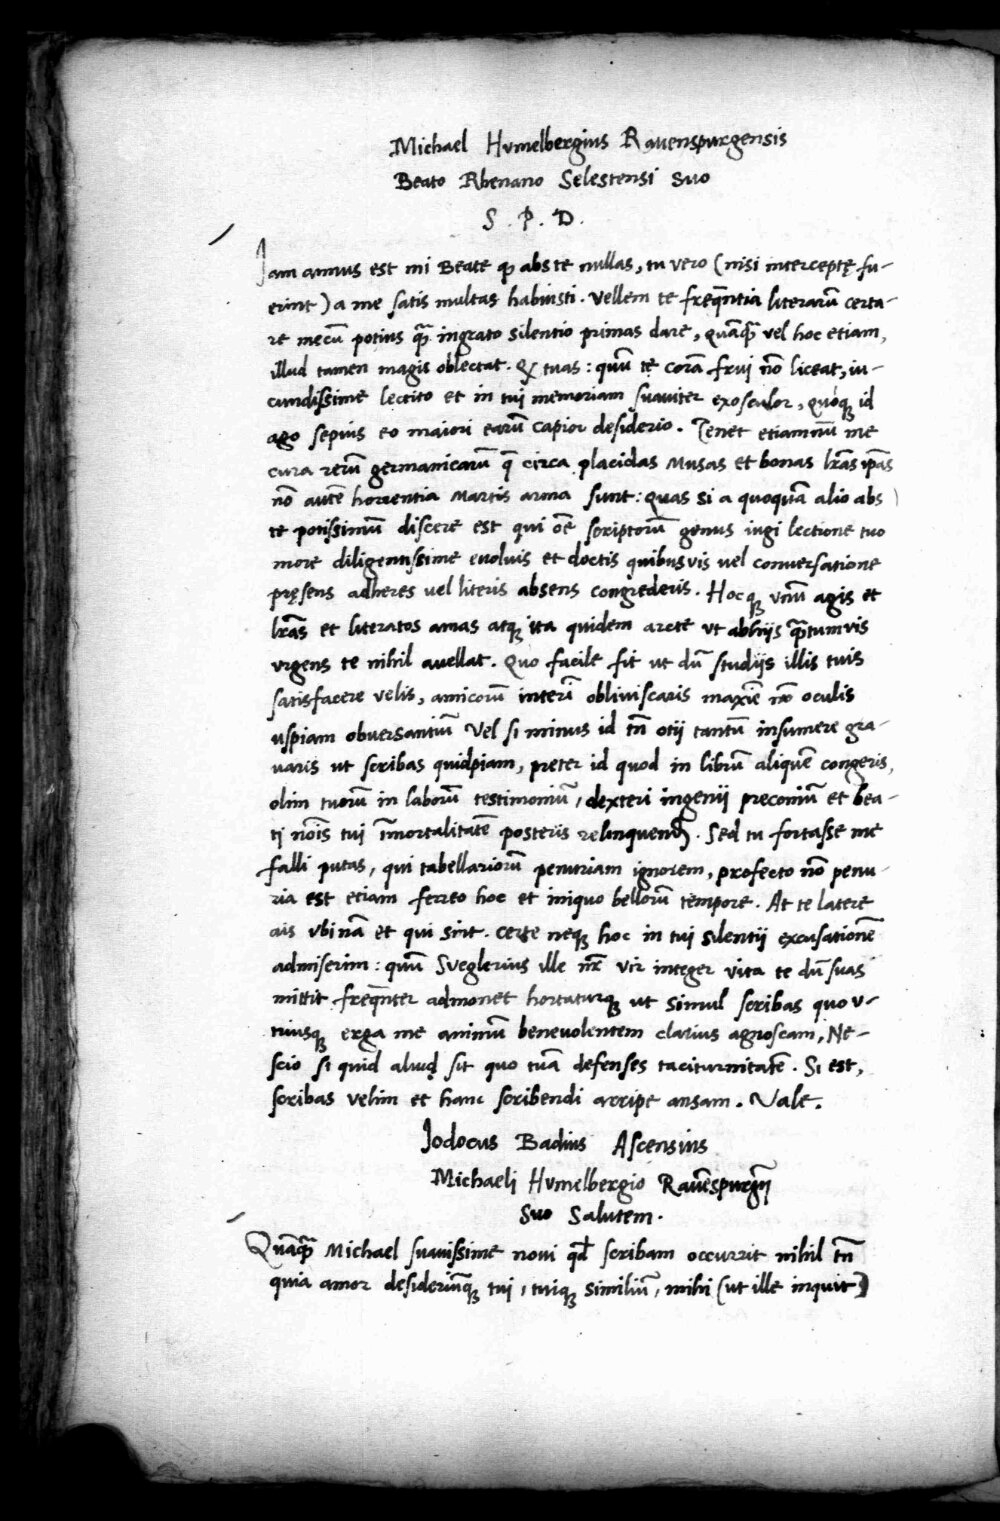 Michael Hvmelbergius Rauenspurgensis
Beato Rhenano Selestensi suo
S. P. D.
Iam annus est mi Beate qꝫ abs te nullas, tu vero (nisi interceptę fu-
erint) a me satis multas habuisti. Vellem te freq̄ntia literarū certa-
re mecū potius q̄ꝫ ingrato silentio primas dare, quāq̄ꝫ vel hoc etiam,
illud tamen magis oblectat. Qꝫ tuas: quū te corā frui nō liceat, iu-
cundissime lectito et in tui memoriam suauiter exosculor, quoqꝫ id
ago sepius eo maiori earū capior desiderio. Tenet etiamnū me
cura rerū germanicarū q̄ circa placidas Musas et bonas lr̄as ip̄as
nō autē horrentia Martis arma sunt: quas si a quoquā alio abs
te potissimū discere est qui oē scriptorū genus iugi lectione tuo
more diligentissime euoluis et doctis quibusvis uel conuersatione
pręsens adheres uel literis absens congrederis. Hocqꝫ vnū agis et
lr̄as et literatos amas atqꝫ ita quidem arcte vt ab hijs q̄ꝫtumvis
vrgens te nihil auellat. Quo facile fit ut dū studijs illis tuis
satisfacere velis, amicorū interī obliuiscaris maxīe nr̄o oculis
uspiam obuersantiū Vel si minus id tn̄ otij tantū insumere gra-
uaris ut scribas quidpiam, preter id quod in librū aliquē congeris,
olim tuorū in laborū testimoniū, dexteri ingenij preconiū et bea-
ti nōis tui īmortalitatē posteris relinquendū. Sed tu fortasse me
falli putas, qui tabellariorū penuriam ignorem, profecto nō penu-
ria est etiam ferreo hoc et iniquo bellorū tempore. At te latere
ais vbi nā et qui sint. Certe neqꝫ hoc in tui silentij excusationē
admiserim: quū Sueglerius ille nr̄ vir integer vita te dū suas
mittit freq̄nter admonet hortaturqꝫ ut simul scribas quo v-
triusqꝫ erga me animū beneuolentem clarius agnoscam, Ne-
scio si quid aliud sit quo tuā defenses taciturnitatē. Si est,
scribas velim et hanc scribendi arripe ansam. Vale.
Iodocus Badius Ascensius
Michaeli Hvmelbergio Rauēspurgēsi
Suo Salutem.
Quāq̄ꝫ Michael suauissime noui qd̄ scribam occurrit nihil tn̄
quia amor desideriūqꝫ tui, tuiqꝫ similiū, mihi (ut ille inquit)